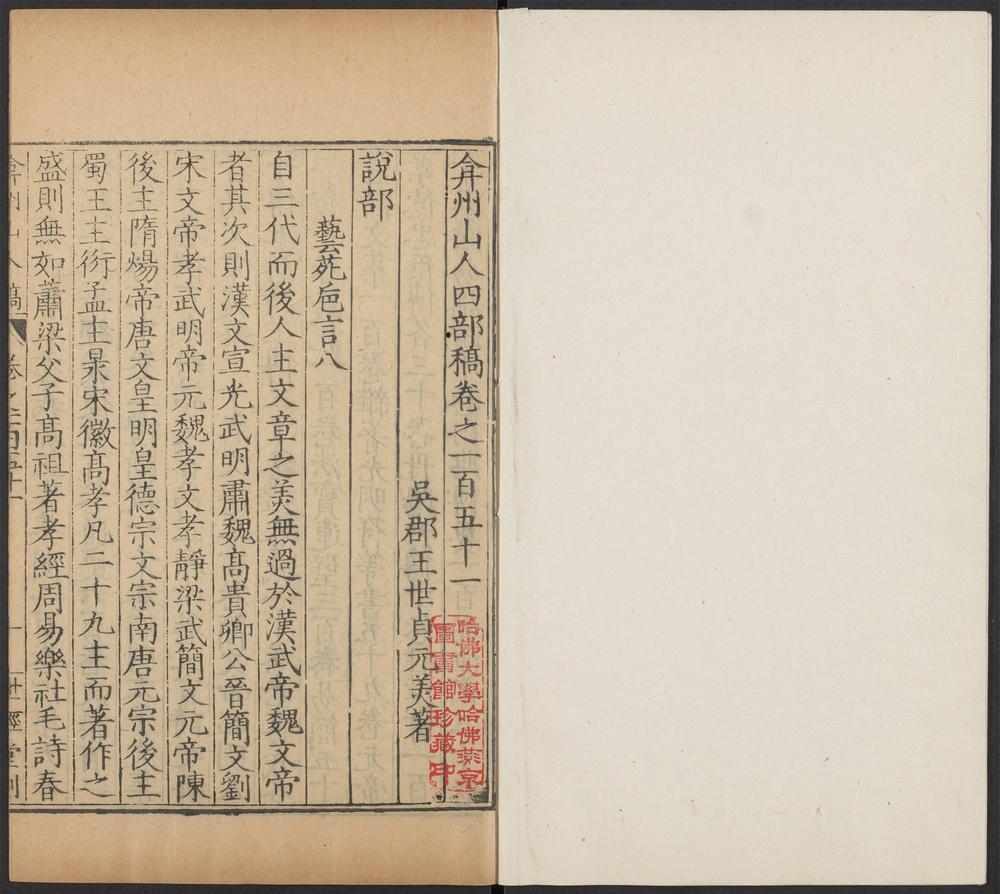 弇州山人四部稿卷之一百五十一
吳郡王世貞元美著
說部
藝苑巵言八
自三代而後人主文章之美無過於漢武帝魏文帝
者其次則漢文宣光武明肅魏髙貴卿公晉簡文劉
宋文帝孝武明帝元魏孝文孝靜梁武簡文元帝陳
後主隋煬帝唐文皇明皇德宗文宗南唐元宗後主
蜀王主衍孟主㫤宋徽髙孝凡二十九主而著作之
盛則無如蕭梁父子髙祖著孝經周易樂社毛詩春
弇州山人稿 卷之一百五十一 一 世經堂刻
哈佛大學哈佛燕京
圖書館珍藏印